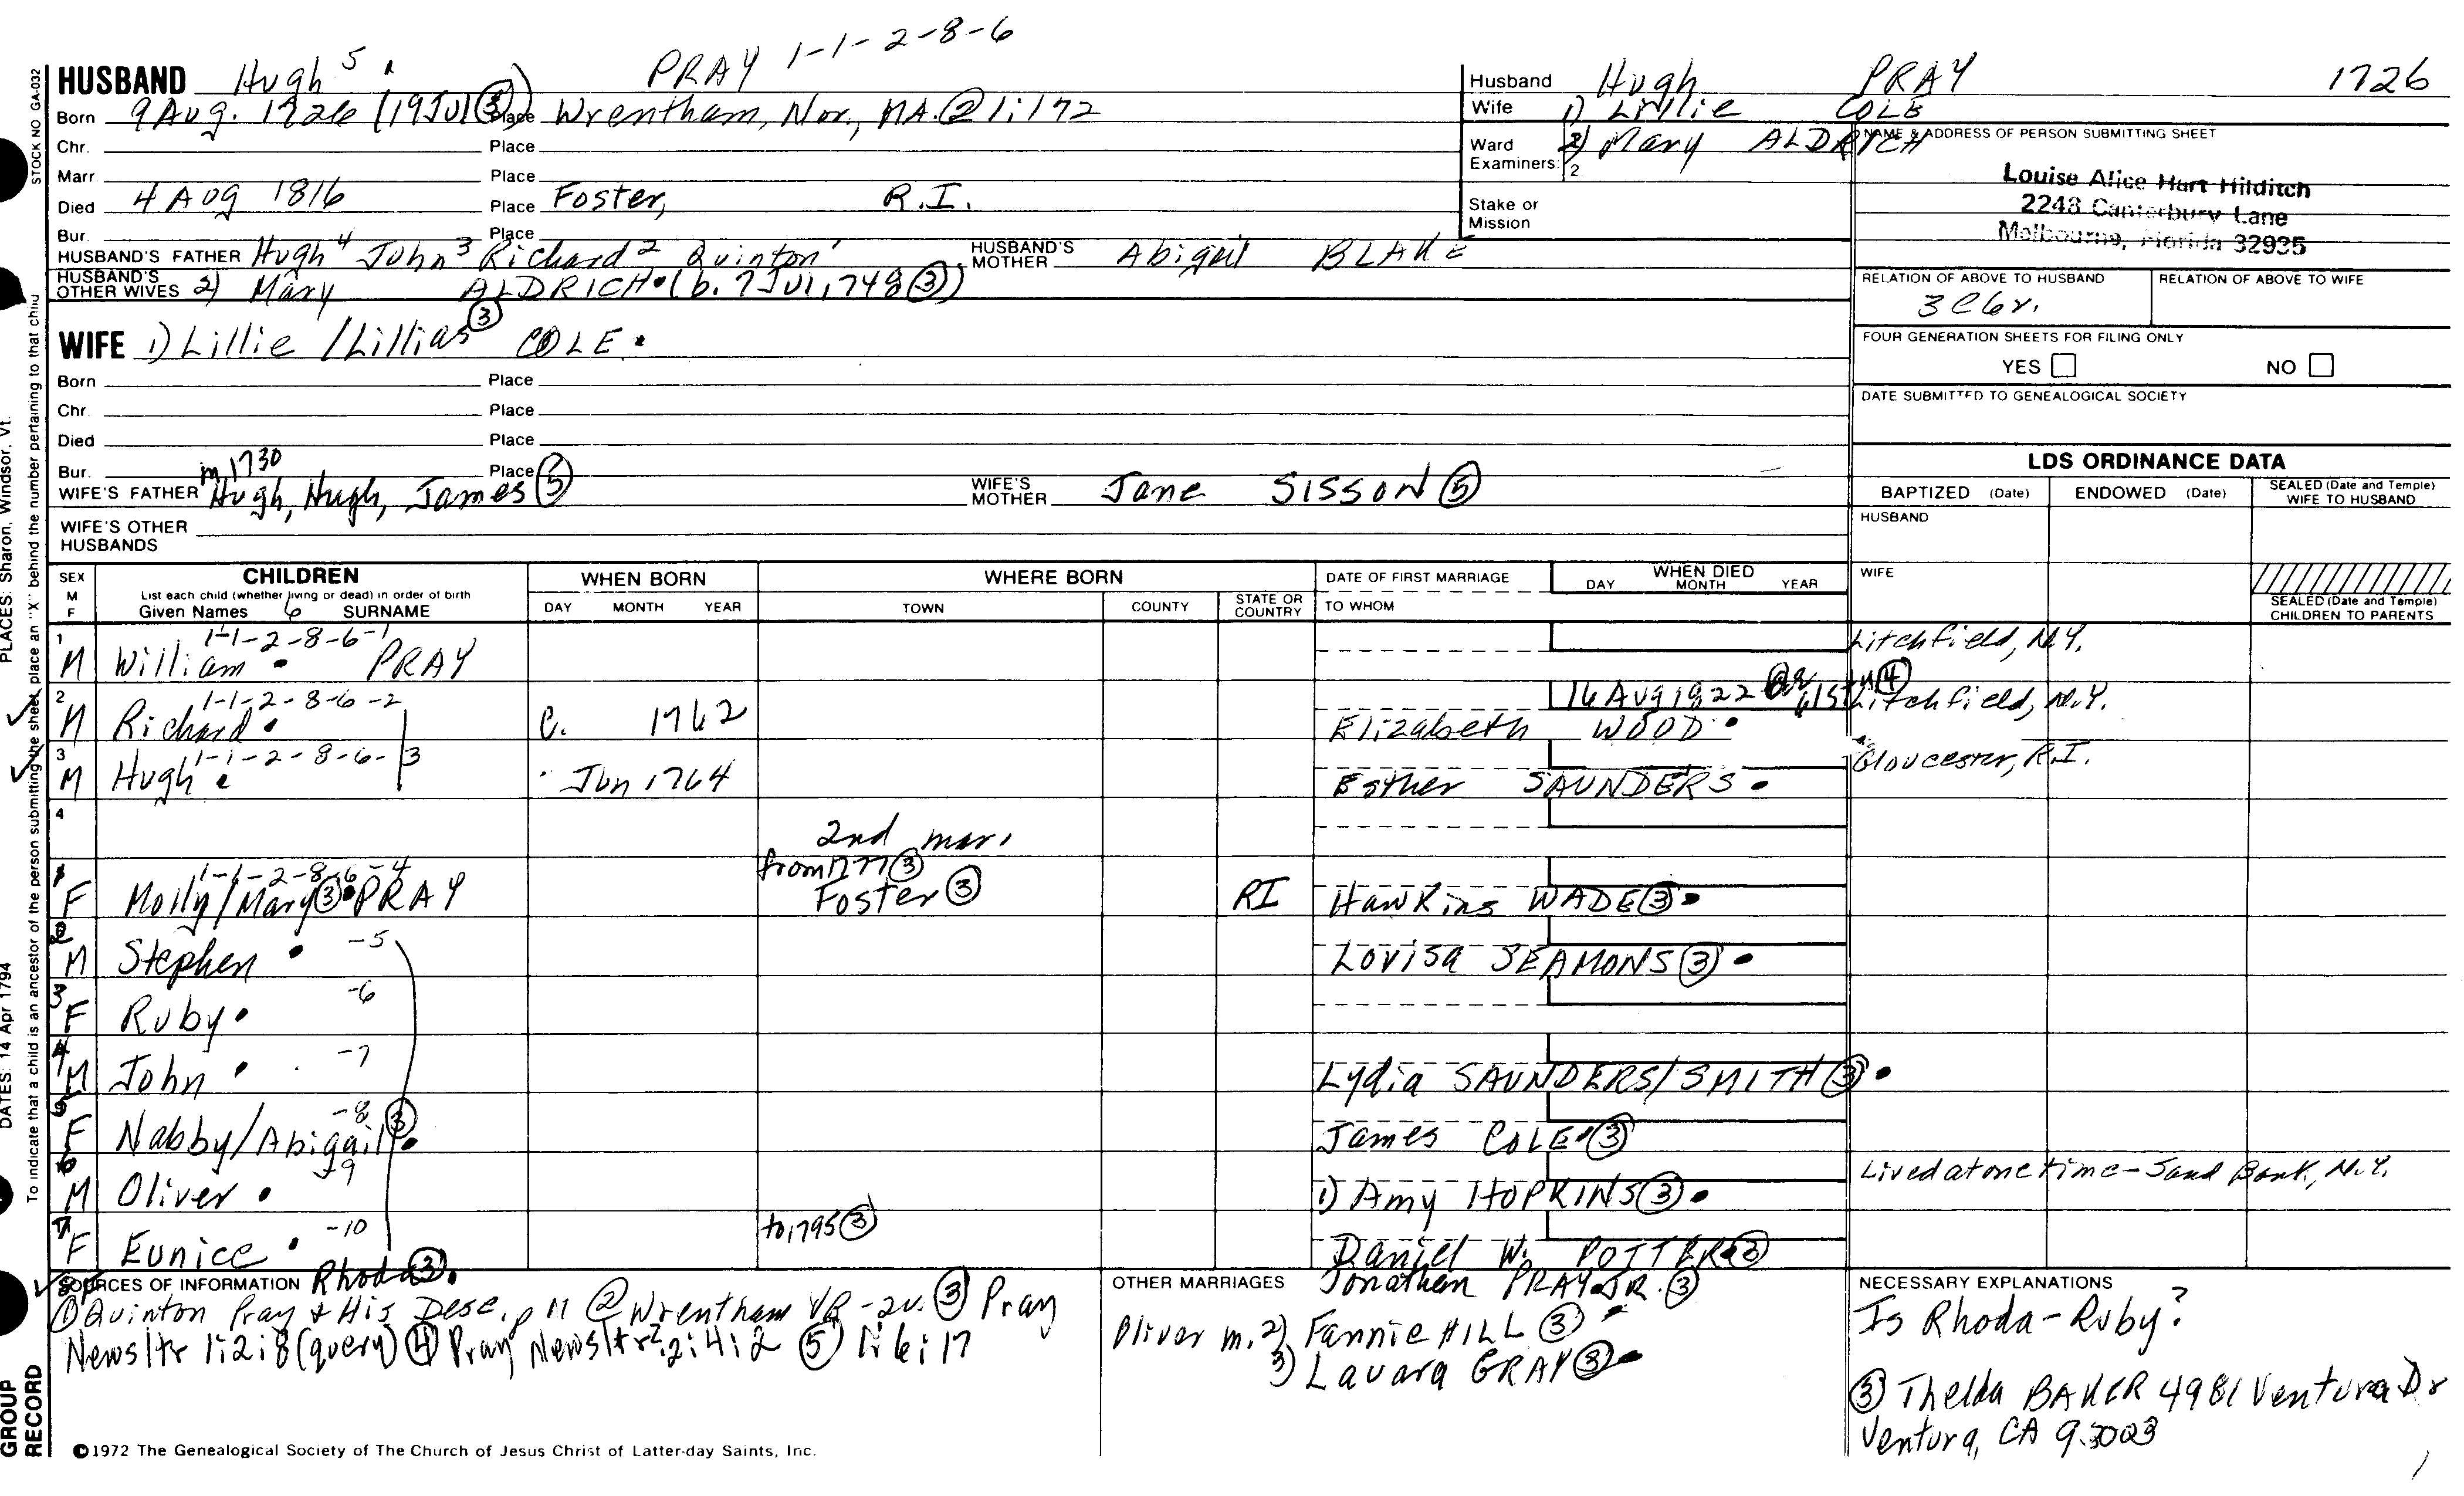 PRAY 1-1-2-8-6
HUSBAND Hugh 5
Born 9 Aug. 1726 (19 Jul ③) Place Wrentham, Nor., MA. ② 1:172
Chr. Place
Marr. Place
Died 4 Aug 1816 Place Foster, R.I.
Bur. Place
HUSBAND'S FATHER Hugh 4 John 3 Richard 2 Quinton 1 HUSBAND'S MOTHER Abigail BLAKE
HUSBAND'S OTHER WIVES 2) Mary ALDRICH • (b. 7 Jul 1748 ③)
WIFE 1) Lillie / Lillias ③ COLE •
Born Place
Chr. Place
Died Place
Bur. Place
m 1730
WIFE'S FATHER Hugh, Hugh, James ⑤ WIFE'S MOTHER Jane SISSON ⑤
WIFE'S OTHER HUSBANDS
Husband Hugh PRAY 1726
Wife 1) Lillie COLE
Ward Examiners: 2) Mary ALDRICH
2
Stake or Mission
NAME & ADDRESS OF PERSON SUBMITTING SHEET
Louise Alice Hart Hilditch
2243 Canterbury Lane
Melbourne, Florida 32935
RELATION OF ABOVE TO HUSBAND RELATION OF ABOVE TO WIFE
3 C6r.
FOUR GENERATION SHEETS FOR FILING ONLY
YES NO
DATE SUBMITTED TO GENEALOGICAL SOCIETY
LDS ORDINANCE DATA
BAPTIZED (Date) ENDOWED (Date) SEALED (Date and Temple) WIFE TO HUSBAND
HUSBAND
WIFE
SEALED (Date and Temple) CHILDREN TO PARENTS
SEX M F CHILDREN List each child (whether living or dead) in order of birth Given Names 6 SURNAME WHEN BORN DAY MONTH YEAR WHERE BORN TOWN COUNTY STATE OR COUNTRY DATE OF FIRST MARRIAGE TO WHOM WHEN DIED DAY MONTH YEAR
1 M William • PRAY 1-1-2-8-6-1 Litchfield, N.Y.
2 M Richard • 1-1-2-8-6-2 C. 1762 Elizabeth WOOD • 16 Aug 1822 ④ Litchfield, N.Y.
3 M Hugh • 1-1-2-8-6-3 Jun 1764 Esther SAUNDERS • Gloucester, R.I.
4
2nd mar.
from 1777 ③
1 F Molly/Mary ③ • PRAY 1-1-2-8-6-4 Foster ③ RI Hawkins WADE ③ •
2 M Stephen • -5 Lovisa SEAMONS ③ •
3 F Ruby • -6
4 M John • -7 Lydia SAUNDERS/SMITH ③ •
5 F Nabby/Abigail ③ • -8 James COLE • ③
6 M Oliver • -9 1) Amy HOPKINS ③ • Lived at one time - Sand Bank, N.Y.
7 F Eunice • -10 to 1795 ③ Daniel W. POTTER ③
8 F Rhoda ③ • Jonathan PRAY JR. ③
SOURCES OF INFORMATION
① Quinton Pray & His Desc. p 11 ② Wrentham VR-2v. ③ Pray
Newsltr 1:2:8 (query) ④ Pray Newsltr 2:4:2 ⑤ 1:6:17
OTHER MARRIAGES
Oliver m. 2) Fannie HILL ③
3) Lavara GRAY ③ •
NECESSARY EXPLANATIONS
Is Rhoda - Ruby?
③ Thelda BAKER 4981 Ventura Dr
Ventura, CA 93003
©1972 The Genealogical Society of The Church of Jesus Christ of Latter-day Saints, Inc.
STOCK NO GA-032
To indicate that a child is an ancestor of the person submitting the sheet, place an "X" behind the number pertaining to that child
PLACES: Sharon, Windsor, Vt.
DATES: 14 Apr 1794
GROUP
RECORD